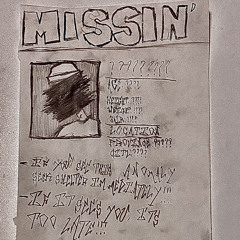 MISSIN'
???????
AGE ????
HEIGHT ????
LOCATION
PROVINCE ?????
CITY ????
- IF YOU SEE THIS ANOMALY
SEEK SHELTER IMMEDIATELY!!!
- IF IT SEES YOU ITS
TOO LATE!!!